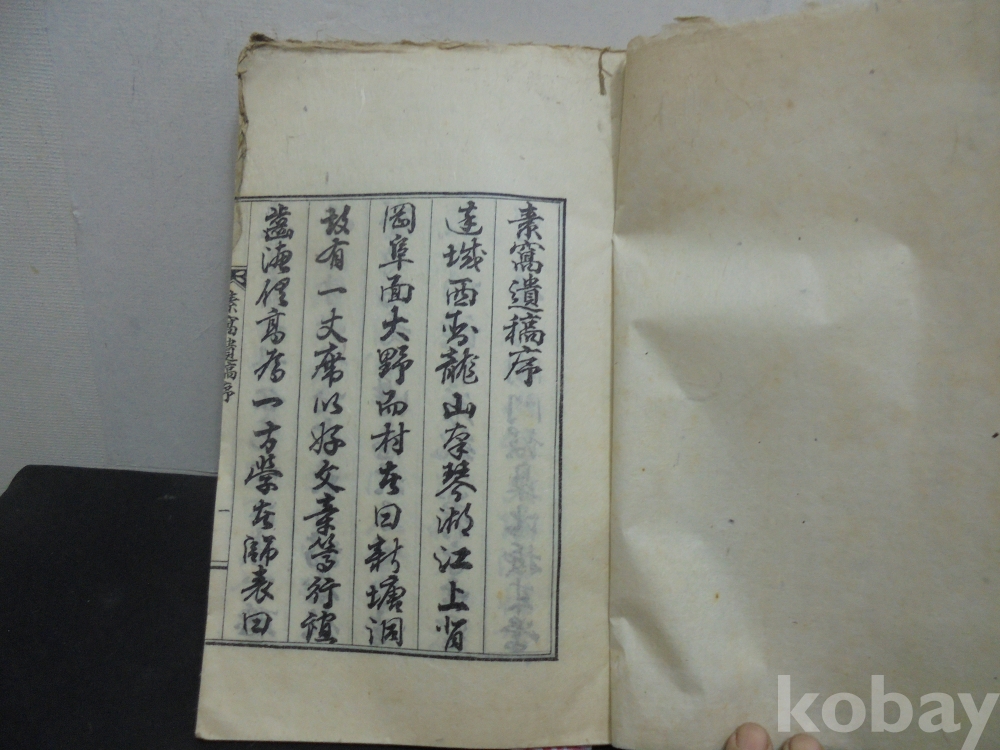 素窩遺稿序
達城西龍山琴湖江上背
岡阜面大野而村者曰新塘洞
故有一丈席以好文章篤行誼
齒德俱高爲一方學者師表曰
素窩遺稿序 一
kobay